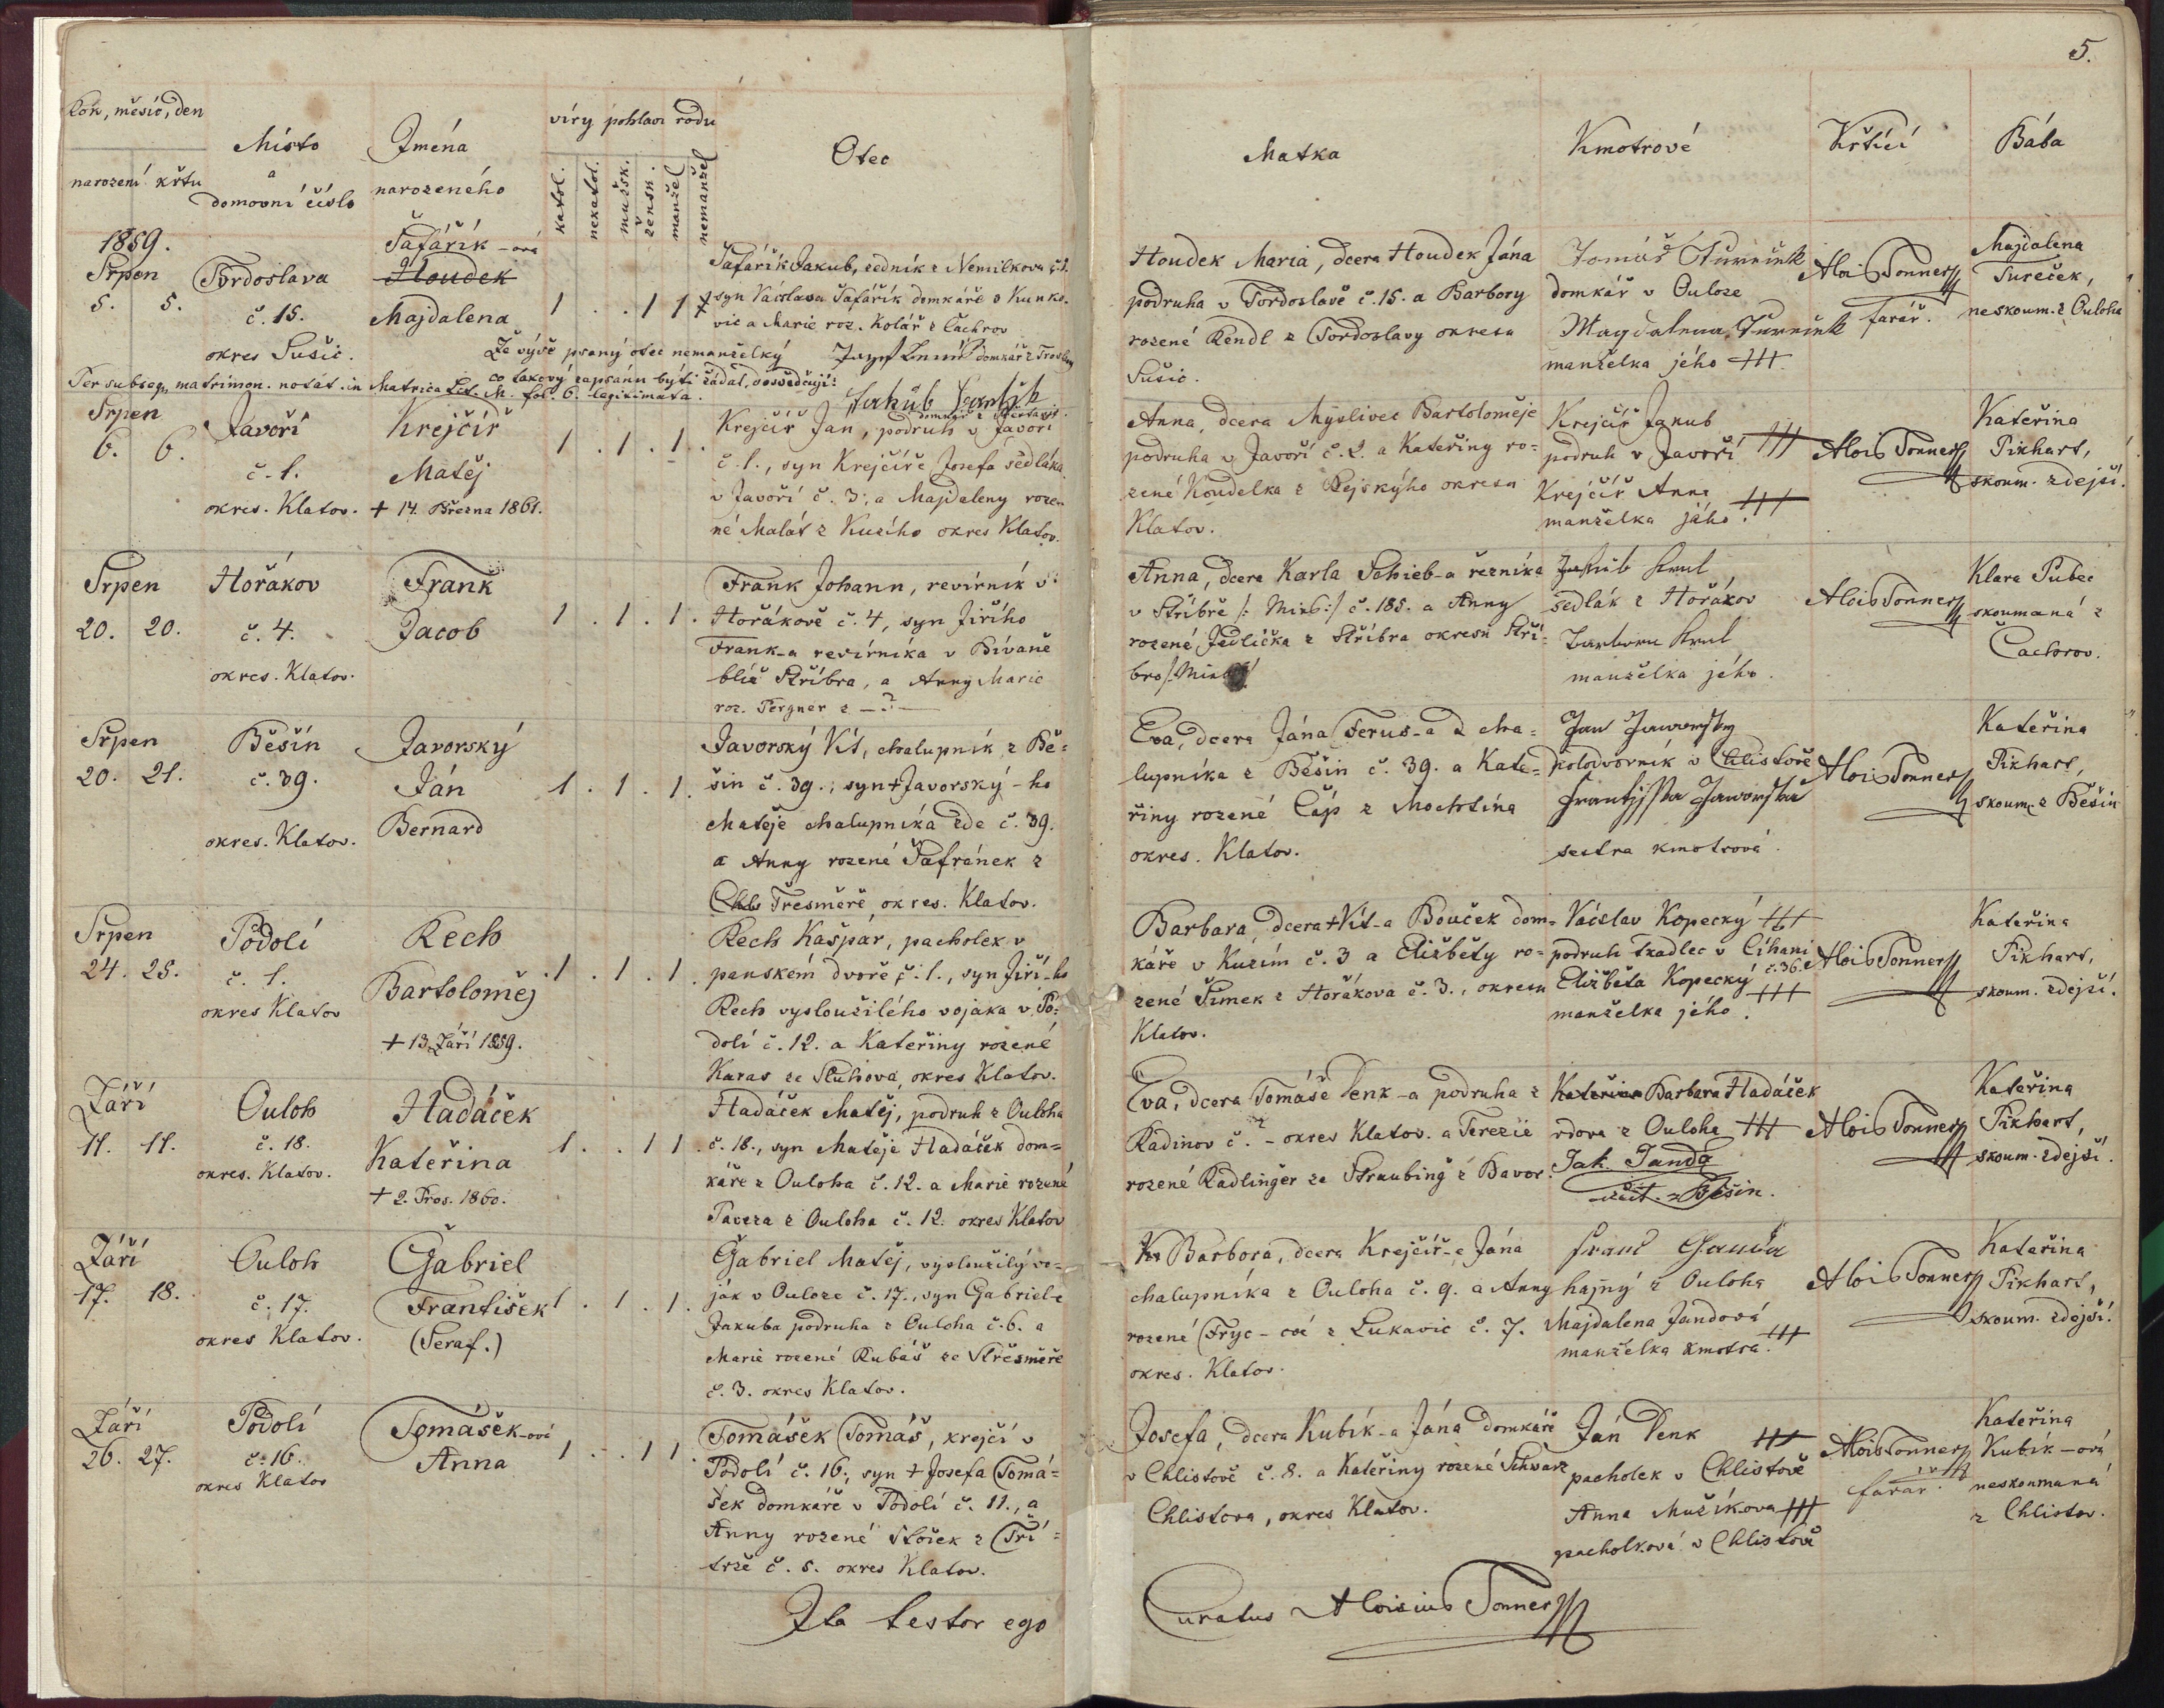 5.
Rok, měsíc, den
narození křtu
Místo
a
domovní číslo
Jména
narozeného
víry pohlaví rodu
katol.
nekatol.
mužsk.
žensk.
manžel
nemanžel
Otec
Matka
Kmotrové
Křtící
Bába
1859.
Srpen
5. 5.
Tvrdoslava
č. 15.
okres Sušic.
Šafářík-ová
Houdek
Majdalena
1 . . 1 1
Šafářík Jakub, zedník z Nemilkova
syn Václava Šafářík domkáře z Kunko-
vic a Marie roz. Kolář z Čachrov
Že výše psaný otec nemanželký
co takový zapsánu býti žádal, dosvědčují:
Per subseq. matrimon. notát. in Matrica
fol. 6. legitimata.
Houdek Maria, dcera Houdek Jána
podruha v Tvrdoslavě č. 15. a Barbory
rozené Rendl z Tvrdoslavy okresu
Sušic.
Tomáš Tureček
domkář v Ouloze
Magdalena Tureček
manželka jého +++
Alois Tonner
farář.
Majdalena
Tureček,
neskoum. z Ouloha
Srpen
6. 6.
Javoří
č. 1.
okres. Klatov.
Krejčíř
Matěj
+ 14. Března 1861.
1 . 1 . 1 .
Krejčíř Jan, podruh v Javoří
č. 1., syn Krejčíře Josefa sedláka
v Javoří č. 3; a Majdaleny roze-
né Malát z Kuzího okres Klatov.
Anna, dcera Mýslivec Bartoloměje
podruha v Javoří č. 2. a Kateřiny ro=
zené Koudelka z okresu
Klatov.
Krejčíř Jakub
podruh v Javoří +++
Krejčíř Anna
manželka jého. +++
Alois Tonner
Kateřina
Pikhart,
skoum. zdejší.
Srpen
20. 20.
Hořákov
č. 4.
okres. Klatov.
Frank
Jacob
1 . 1 . 1 .
Frank Johann, revírník v
Hořákově č. 4, syn Jiřího
Frank-a revírníka v Bívaně
blíž Stříbra, a Anny Marie
roz. Pergner z — ? —
Anna, dcera Karla Schieb-a řezníka
v Stříbře /: Mies :/ č. 185. a Anny
rozené Jedlička z Stříbra okresu Stří-
bro /: Mies
Jakub Kral
sedlák z Hořákov
Barbora Kral
manželka jého.
Alois Tonner
Klara Pubec
skoumaná z
Čachrov.
Srpen
20. 21.
Běšín
č. 39.
okres. Klatov.
Javorský
Ján
Bernard
1 . 1 . 1 .
Javorský Vít, chalupník z Bě-
šin č. 39.; syn + Javorský-ho
Matěje chalupníka zde č. 39.
a Anny rozené Šafránek z
Třesměře okres. Klatov.
Eva, dcera Jána Ferus-a z cha-
lupníka z Běšin č. 39. a Kate-
řiny rozené Čáp z Mochtína
okres. Klatov.
Jan Jaworsky
polodvorník v Chlistově
Frantisska Jaworska
sestra kmotrová.
Alois Tonner
Kateřina
Pikhart,
skoum. z Běšin
Srpen
24. 25.
Podolí
č. 1.
okres Klatov
Rech
Bartoloměj
+ 13. Září 1859.
1 . 1 . 1 .
Rech Kašpár, pacholek v
panském dvoře č. 1., syn Jiří-ho
Rech vysloužilého vojaka v Po-
dolí č. 12. a Kateřiny rozené
Karas ze Sluhova, okres Klatov.
Barbara, dcera + Vít-a Bouček dom-
káře v Kuzím č. 3 a Eližběty ro-
zené Šimek z Hořákova č. 3., okresu
Klatov.
Václav Kopecký +++
podruh tkadlec v Cíhani
č. 36.
Eližběta Kopecký
manželka jého. +++
Alois Tonner
Kateřina
Pikhart,
skoum. zdejší.
Září
11. 11.
Ouloh
č. 18.
okres. Klatov.
Hadáček
Kateřina
+ 2. Pros. 1860.
1 . . 1 1 .
Hadáček Matěj, podruh z Ouloha
č. 18., syn Matěje Hadáček dom-
káře z Ouloha č. 12. a Marie rozené
Paveza z Ouloha č. 12. okres Klatov
Eva, dcera Tomáše Penk-a podruha z
Radinov č. ? - okres Klatov. a Terezie
rozené Radlinger ze Straubing z Bavor.
Kateřina Barbara Hadáček
vdova z Ouloha +++
Jak. Janda
učit. z Běšin.
Alois Tonner
Kateřina
Pikhart,
skoum. zdejší.
Září
17. 18.
Ouloh
č. 17.
okres Klatov.
Gabriel
František
(Seraf.)
1 . 1 . 1 .
Gabriel Matěj, vysloužilý vo-
ják v Ouloze č. 17., syn Gabriel-e
Jakuba podruha z Ouloha č. 6. a
Marie rozené Rubáš ze Střesměře
č. 3. okres Klatov.
Barbora, dcera Krejčíř-e Jána
chalupníka z Ouloha č. 9. a Anny
rozené Fryc-ové z Lukavic č. 7.
okres. Klatov.
Franc Ganda
hajný z Ouloha
Majdalena Jandová
manželka kmotra. +++
Alois Tonner
Kateřina
Pikhart,
skoum. zdejší.
Září
26. 27.
Podolí
č. 16.
okres Klatov
Tomášek-ová
Anna
1 . . 1 1 .
Tomášek Tomáš, krejčí v
Podolí č. 16., syn + Josefa Tomá=
šek domkáře v Podolí č. 11., a
Anny rozené Stošek z Tří=
trže č. 5. okres Klatov.
Josefa, dcera Kubík-a Jána domkáře
v Chlistově č. 8. a Kateřiny rozené Schwarz
Chlistova, okres Klatov.
Ján Penk +++
pacholek v Chlistově
Anna Mužíkova +++
pacholková v Chlistově
Alois Tonner
farář.
Kateřina
Kubík-ová
neskoumaná
z Chlistov.
Ita testor ego
Curatus Aloisius Tonner